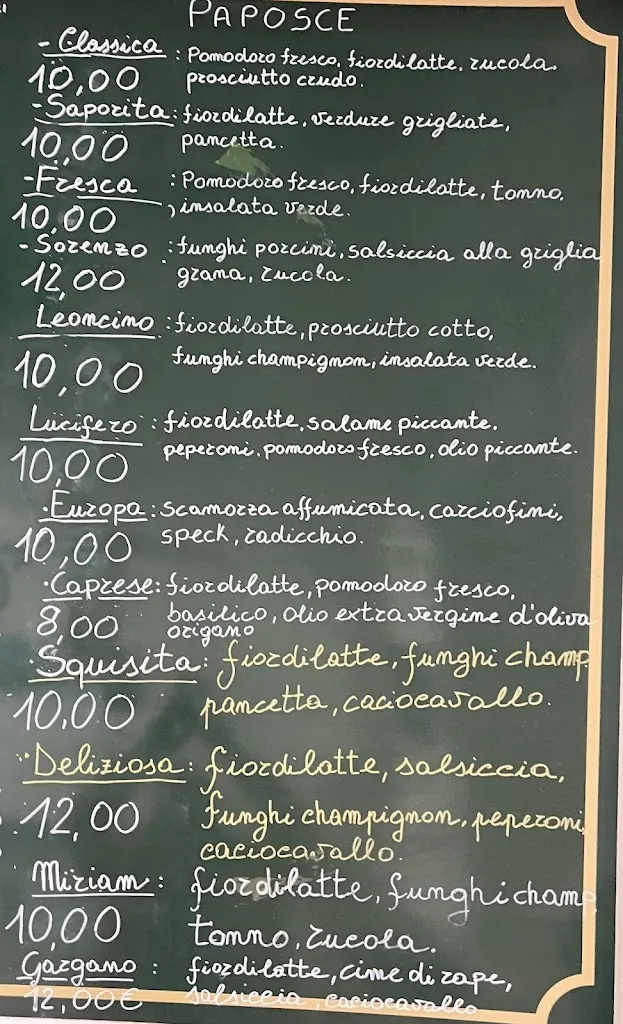 PAPOSCE
- Classica : Pomodoro fresco, fiordilatte, rucola.
10,00 prosciutto crudo.
- Saporita : fiordilatte, verdure grigliate,
10,00 pancetta.
- Fresca : Pomodoro fresco, fiordilatte, tonno,
10,00 insalata verde.
- Sorenzo : funghi porcini, salsiccia alla griglia
12,00 grana, rucola.
Leoncino : fiordilatte, prosciutto cotto,
10,00 funghi champignon, insalata verde.
Lucifero : fiordilatte, salame piccante.
10,00 peperoni, pomodoro fresco, olio piccante.
· Europa : scamorza affumicata, carciofini,
10,00 speck, radicchio.
· Caprese : fiordilatte, pomodoro fresco,
8,00 basilico, olio extravergine d'oliva
origano
Squisita : fiordilatte, funghi champ
10,00 pancetta, caciocavallo.
Deliziosa : fiordilatte, salsiccia,
12,00 funghi champignon, peperoni
caciocavallo.
Miriam : fiordilatte, funghi champ
10,00 tonno, rucola.
Gargano : fiordilatte, cime di rape,
12,00€ salsiccia, caciocavallo